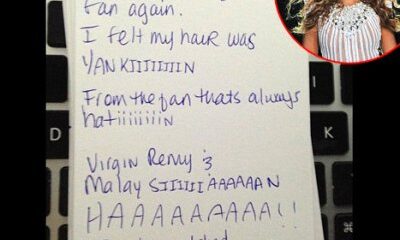 fan again.
I felt my hair was
YANKIIIIIIIN
From the fan thats always
hatiiiiiiiiN
Virgin Remy &
Malay SIIIIIIAAAAAAN
HAAAAAAAAA!!
D
K